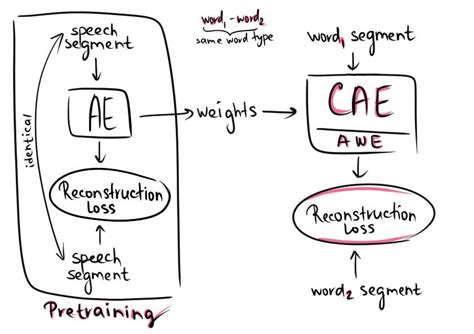 speech
segment
identical
AE
Reconstruction
Loss
speech
segment
Pretraining
weights
word₁-word₂
same word type
word₁ segment
CAE
AWE
Reconstruction
Loss
word₂ segment